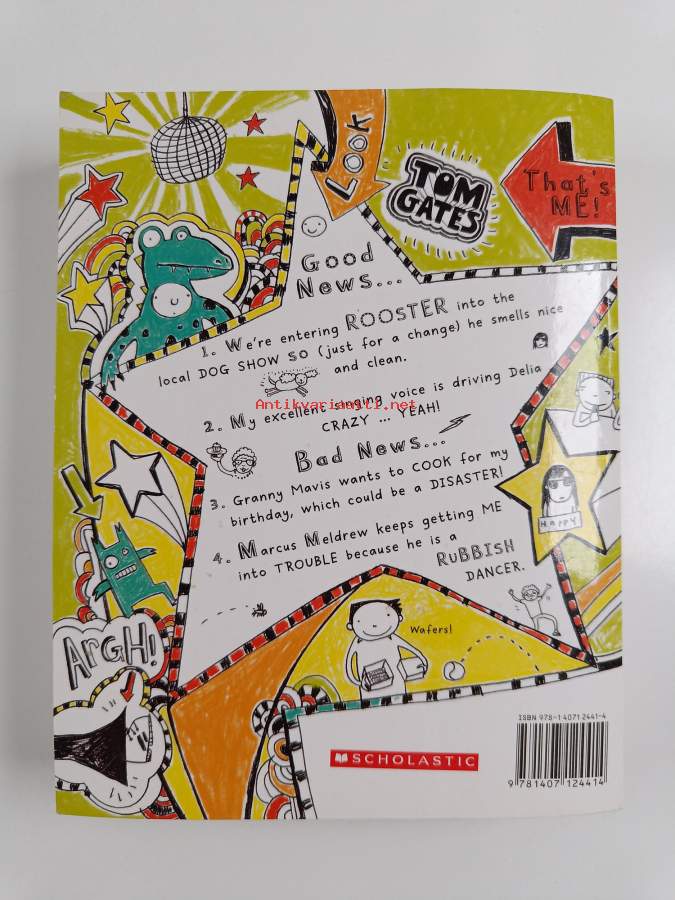 LOOK
TOM
GATES
That's
ME!
Good
News...
1. We're entering ROOSTER into the
local DOG SHOW SO (just for a change) he smells nice
and clean.
Antikvariaatti.net
2. My excellent singing voice is driving Delia
CRAZY ... YEAH!
Bad News...
3. Granny Mavis wants to COOK for my
birthday, which could be a DISASTER!
4. Marcus Meldrew keeps getting ME
into TROUBLE because he is a
RuBBISH
DANCER.
Happy
ARGH!
Wafers!
SCHOLASTIC
ISBN 978-1-4071-2441-4
9 781407 124414